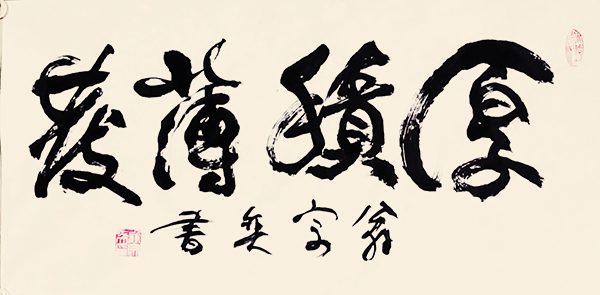 厚積薄發
翁宗奕書